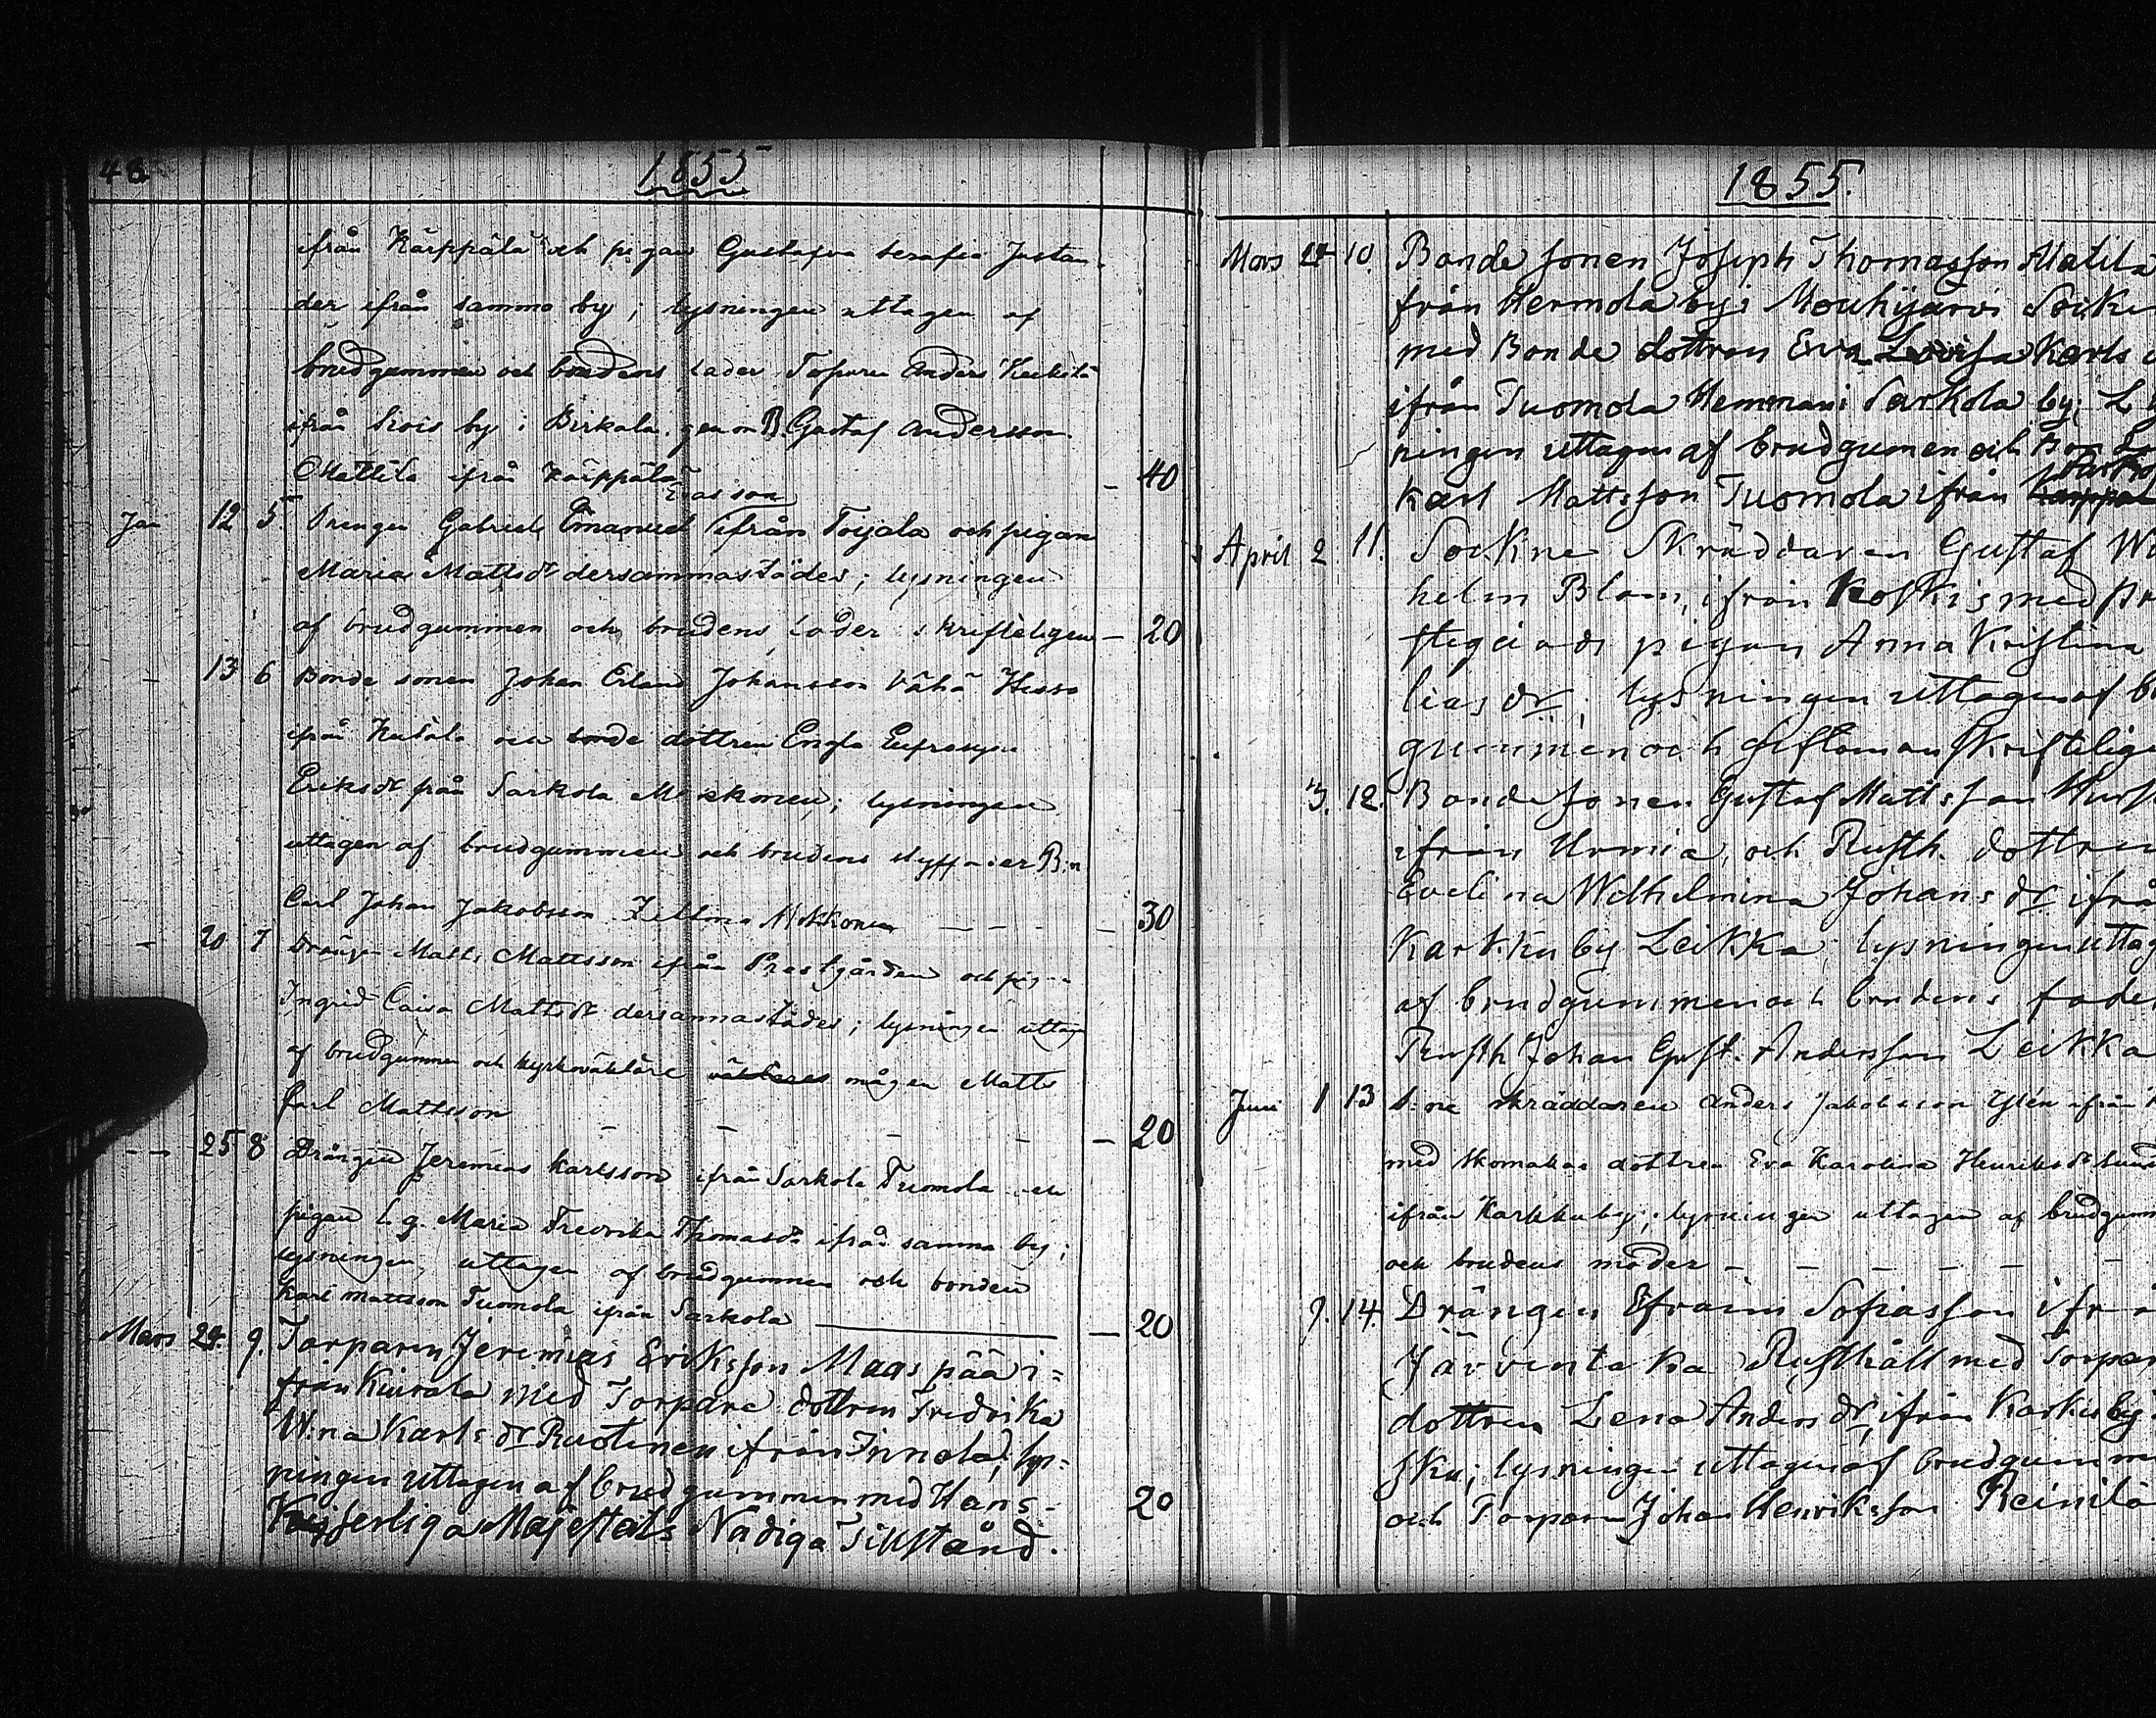 48
1855
ifrån Kärppälä och pigan Gustafva Serafia Justan-
der ifrån samma by; lysningen uttagen af
brudgummen och brudens fader Torparen Anders
ifrån by i Birkala, genom B. Gustaf Andersson
Mattila ifrån Kärppälä - 40
Esaisson
Jan 12 5 Drengen Gabriel Emanuel ifrån Toijala och pigan
Maria Mattsdr dersammastädes; lysningen
af brudgummen och brudens fader skrifteligen - 20
- 13 6 Bonde sonen Johan Erland Johansson Vähä Hissa
ifrån och bonde dottren Engla Eufrosyne
Eriksdr från Sarkola Mokkonen; lysningen
uttagen af brudgummen och brudens styffader B:n
Carl Johan Jakobsson Mokkonen - - - - 30
- 20 7 Drängen Matts Mattsson ifrån Prestgården och pigan
Ingrid Caisa Mattsdr dersammastädes; lysningen uttagen
af brudgummen och kyrkoväktare mågen Matts
Carl Mattsson - - - - - 20
- - 25 8 Drängen Jeremias Karlsson ifrån Sarkola Tuomola och
pigan Maria Fredrika Thomasdr ifrån samma by;
lysningen uttagen af brudgummen och bonden
Karl Mattsson Tuomola ifrån Sarkola - 20
Mars 24. 9. Torparen Jeremias Eriksson Maaspää i=
från Kiurala med Torpare dottren Fredrika
W:na Karls dr Ruotinen ifrån Innola; lys=
ningen uttagen af brudgummen med Hans= 20
Kejserliga Majestäts Nådiga Tillstånd.
1855.
Mars 24 10. Bonde sonen Joseph Thomasson Matila
från Hermola by i Mouhijärvi Socke
med Bonde dottren Eva Lovisa Karls
ifrån Tuomola Hemman i Sarkola by; Ly
ningen uttagen af brudgumen och Bon
Sarko
Karl Mattsson Tuomola ifrån
April 2 11. Sockne Skräddaren Gustaf Wil
helm Blom, ifrån Koskis med
pigan Anna Kristina
lias dr; lysningen uttagen af br
gummen och giftoman skriftelig
3. 12. Bondesonen Gustaf Mattsson
ifrån Urmia, och Rusth. dottren
Evelina Wilhelmina Johans dr ifrå
Karkku by Leikka; lysningen uttag
af brudgummen och brudens fader
Rusth Johan Gust. Andersson Leikka
Juni 1 13 S:ne skräddaren Anders Jakobsson Ylén ifrån
med skomakare dottren Eva Karolina Henriksdr Sund
ifrån Karkku by; lysningen uttagen af brudgum
och brudens moder - - - - - -
9. 14. Drängen Efraim Sofiasson ifr
Järventaka Rusthåll med Torpar
dottren Lena Anders dr, ifrån Karku by
lysningen uttagen af brudgumm
och Torparen Johan Henriksson Reinilä